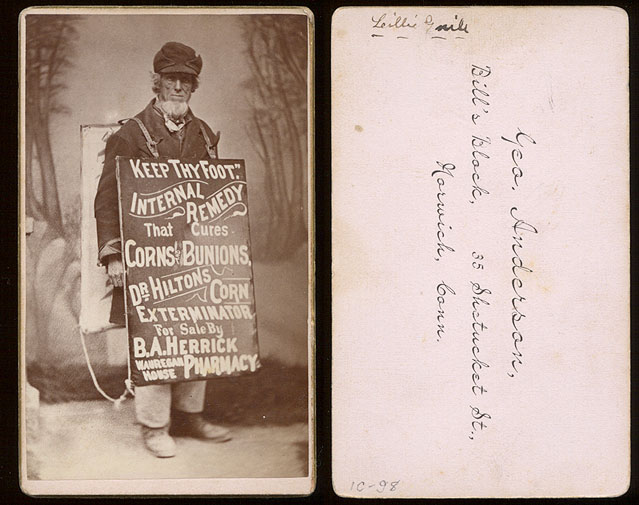 KEEP THY FOOT:
INTERNAL
REMEDY
That Cures
CORNS & BUNIONS,
DR HILTONS CORN
EXTERMINATOR
For Sale By
B.A. HERRICK
WAUREGAN
HOUSE PHARMACY
Geo. Anderson,
Bill's Block, 35 Shetucket St.,
Norwich, Conn.
10-98